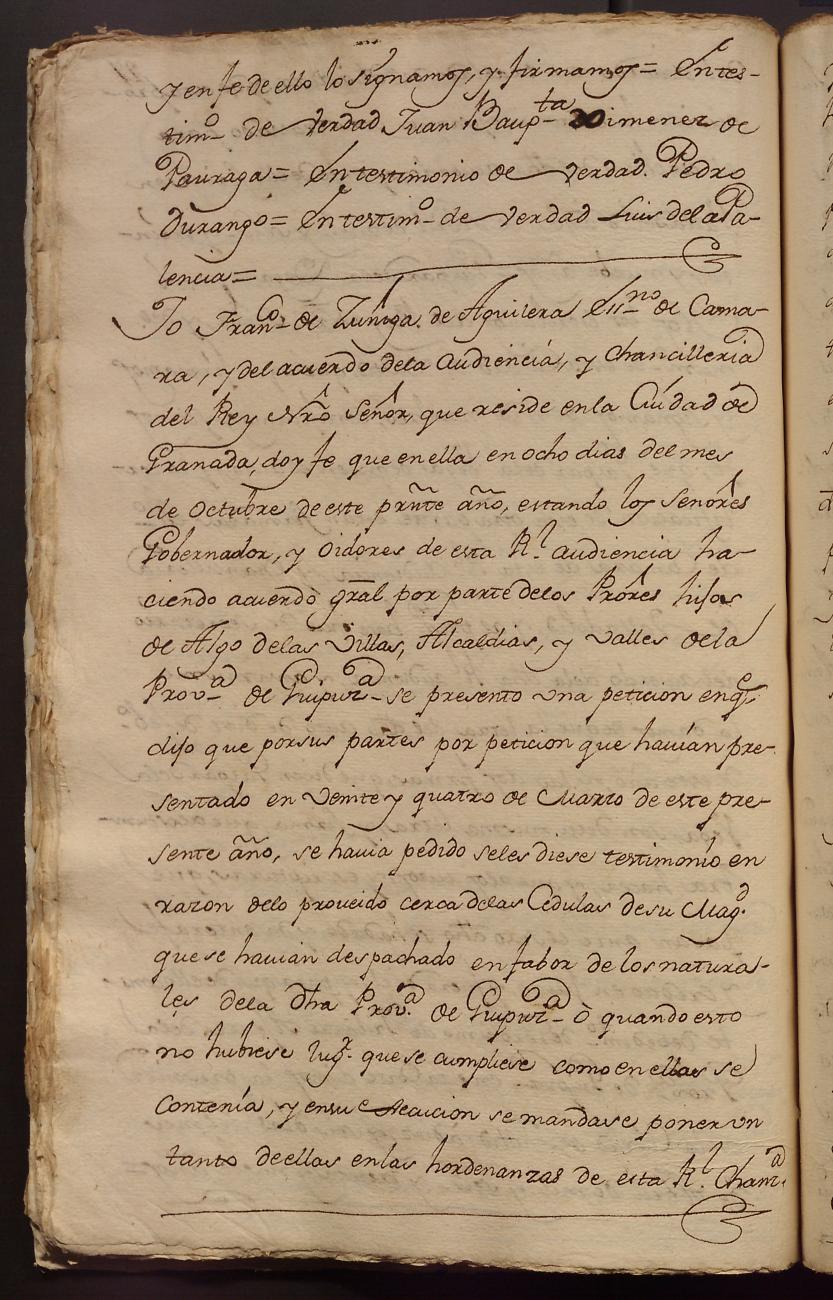 y en fe de ello lo signamos, y firmamos = En tes-
tim.o de verdad Juan Baup.ta Ximenez de
Pauraga = En testimonio de verdad. Pedro
Durango = En testim.o de verdad Luis de la Pa-
lencia =
Io Fran.co de Zuñiga de Aguilera Ess.no de Cama-
ra, y del acuerdo de la audiencia, y Chancilleria
del Rey Nrõ Señor, que reside en la Ciudad de
Granada doy fe que en ella en ocho dias del mes
de Octubre de este prñte año, estando los Señores
Gobernador, y Oidores de esta R.l audiencia ha-
ciendo acuerdo gral por parte de los Prores hijos
de Algo de las Villas, Alcaldias, y Valles de la
Prov.a de Guipuz.a se presento una peticion en q.e
dijo que por sus partes por peticion que havian pre-
sentado en Veinte y quatro de Marzo de este pre-
sente año, se havia pedido se les diese testimonio en
razon de lo proueido cerca de las Cedulas de su Mag.d
que se havian despachado en fabor de los natura-
les de la dha Prov.a de Guipuz.a ò quando esto
no hubiese lug.r que se cumpliese como en ellas se
contenía, y en su execucion se mandase poner un
tanto de ellas en las hordenanzas de esta R.l Chan.a